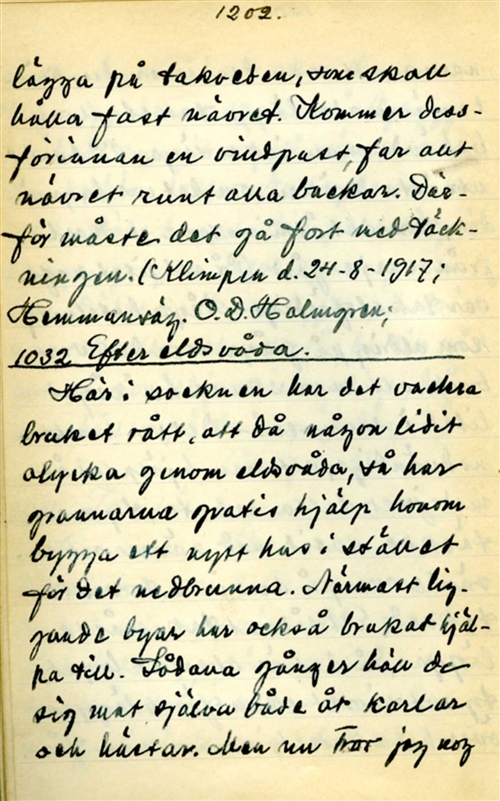 1202.
lägga på takveden, som skall
hålla fast nävret. Kommer dess-
förinnan en vindpust, far allt
nävret runt alla backar. Där-
för måste det gå fort med täck-
ningen. (Klimpen d. 24-8-1917;
Hemmansäg. O.D. Holmgren;
1032 Efter eldsvåda.
Här i socknen har det vackra
bruket rått, att då någon lidit
olycka genom eldsvåda, så har
grannarna gratis hjälp honom
bygga ett nytt hus i stället
för det nedbrunna. Närmast lig-
gande byar har också brukat hjäl-
pa till. Sådana gånger höll de
sig mat själva både åt karlar
och hästar. Men nu tror jag nog